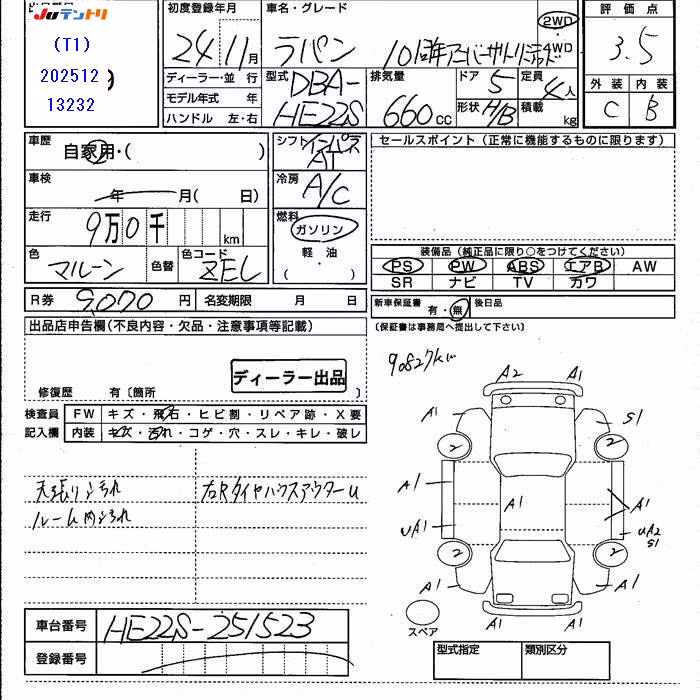 JUテントリ
(T1)
202512
13232
初度登録年月
24 11月
車名・グレード
ラパン 10周年アニバーサリーリミテッド
2WD・4WD
評価点
3.5
ディーラー・並 行
モデル年式 年
ハンドル 左・右
型式
DBA-HE22S
排気量
660cc
ドア 5
形状 H/B
定員 4人
積載 kg
外装 内装
C B
車歴
自家用・( )
車検
年 月( 日)
走行
9万0千 km
色
マルーン
色替
色コード
ZEL
シフト
インパネAT
冷房
A/C
燃料
ガソリン
軽・油
( ・ )
セールスポイント(正常に機能するものに限ります)
装備品(純正品に限り○をつけてください)
PS PW ABS エアB AW
SR ナビ TV カワ
R券 9,070 円 名変期限 月 日
新車保証書 有・無 後日品
(保証書は事務局へ提出して下さい)
出品店申告欄(不良内容・欠品・注意事項等記載)
ディーラー出品
修復歴 有〔箇所 〕
検査員記入欄
FW キズ・飛石・ヒビ割・リペア跡・X要
内装 キズ・汚れ・コゲ・穴・スレ・キレ・破レ
天張りヨゴれ
右Rタイヤハウスアウターu
ルーム内ヨゴれ
90827km
A2 A1
A1 S1
2 2
A1 A1 A1
uA1 uA2
S1
2 2
A1 A1
A1 A1
スペア
車台番号 HE22S-251523
登録番号
型式指定 類別区分